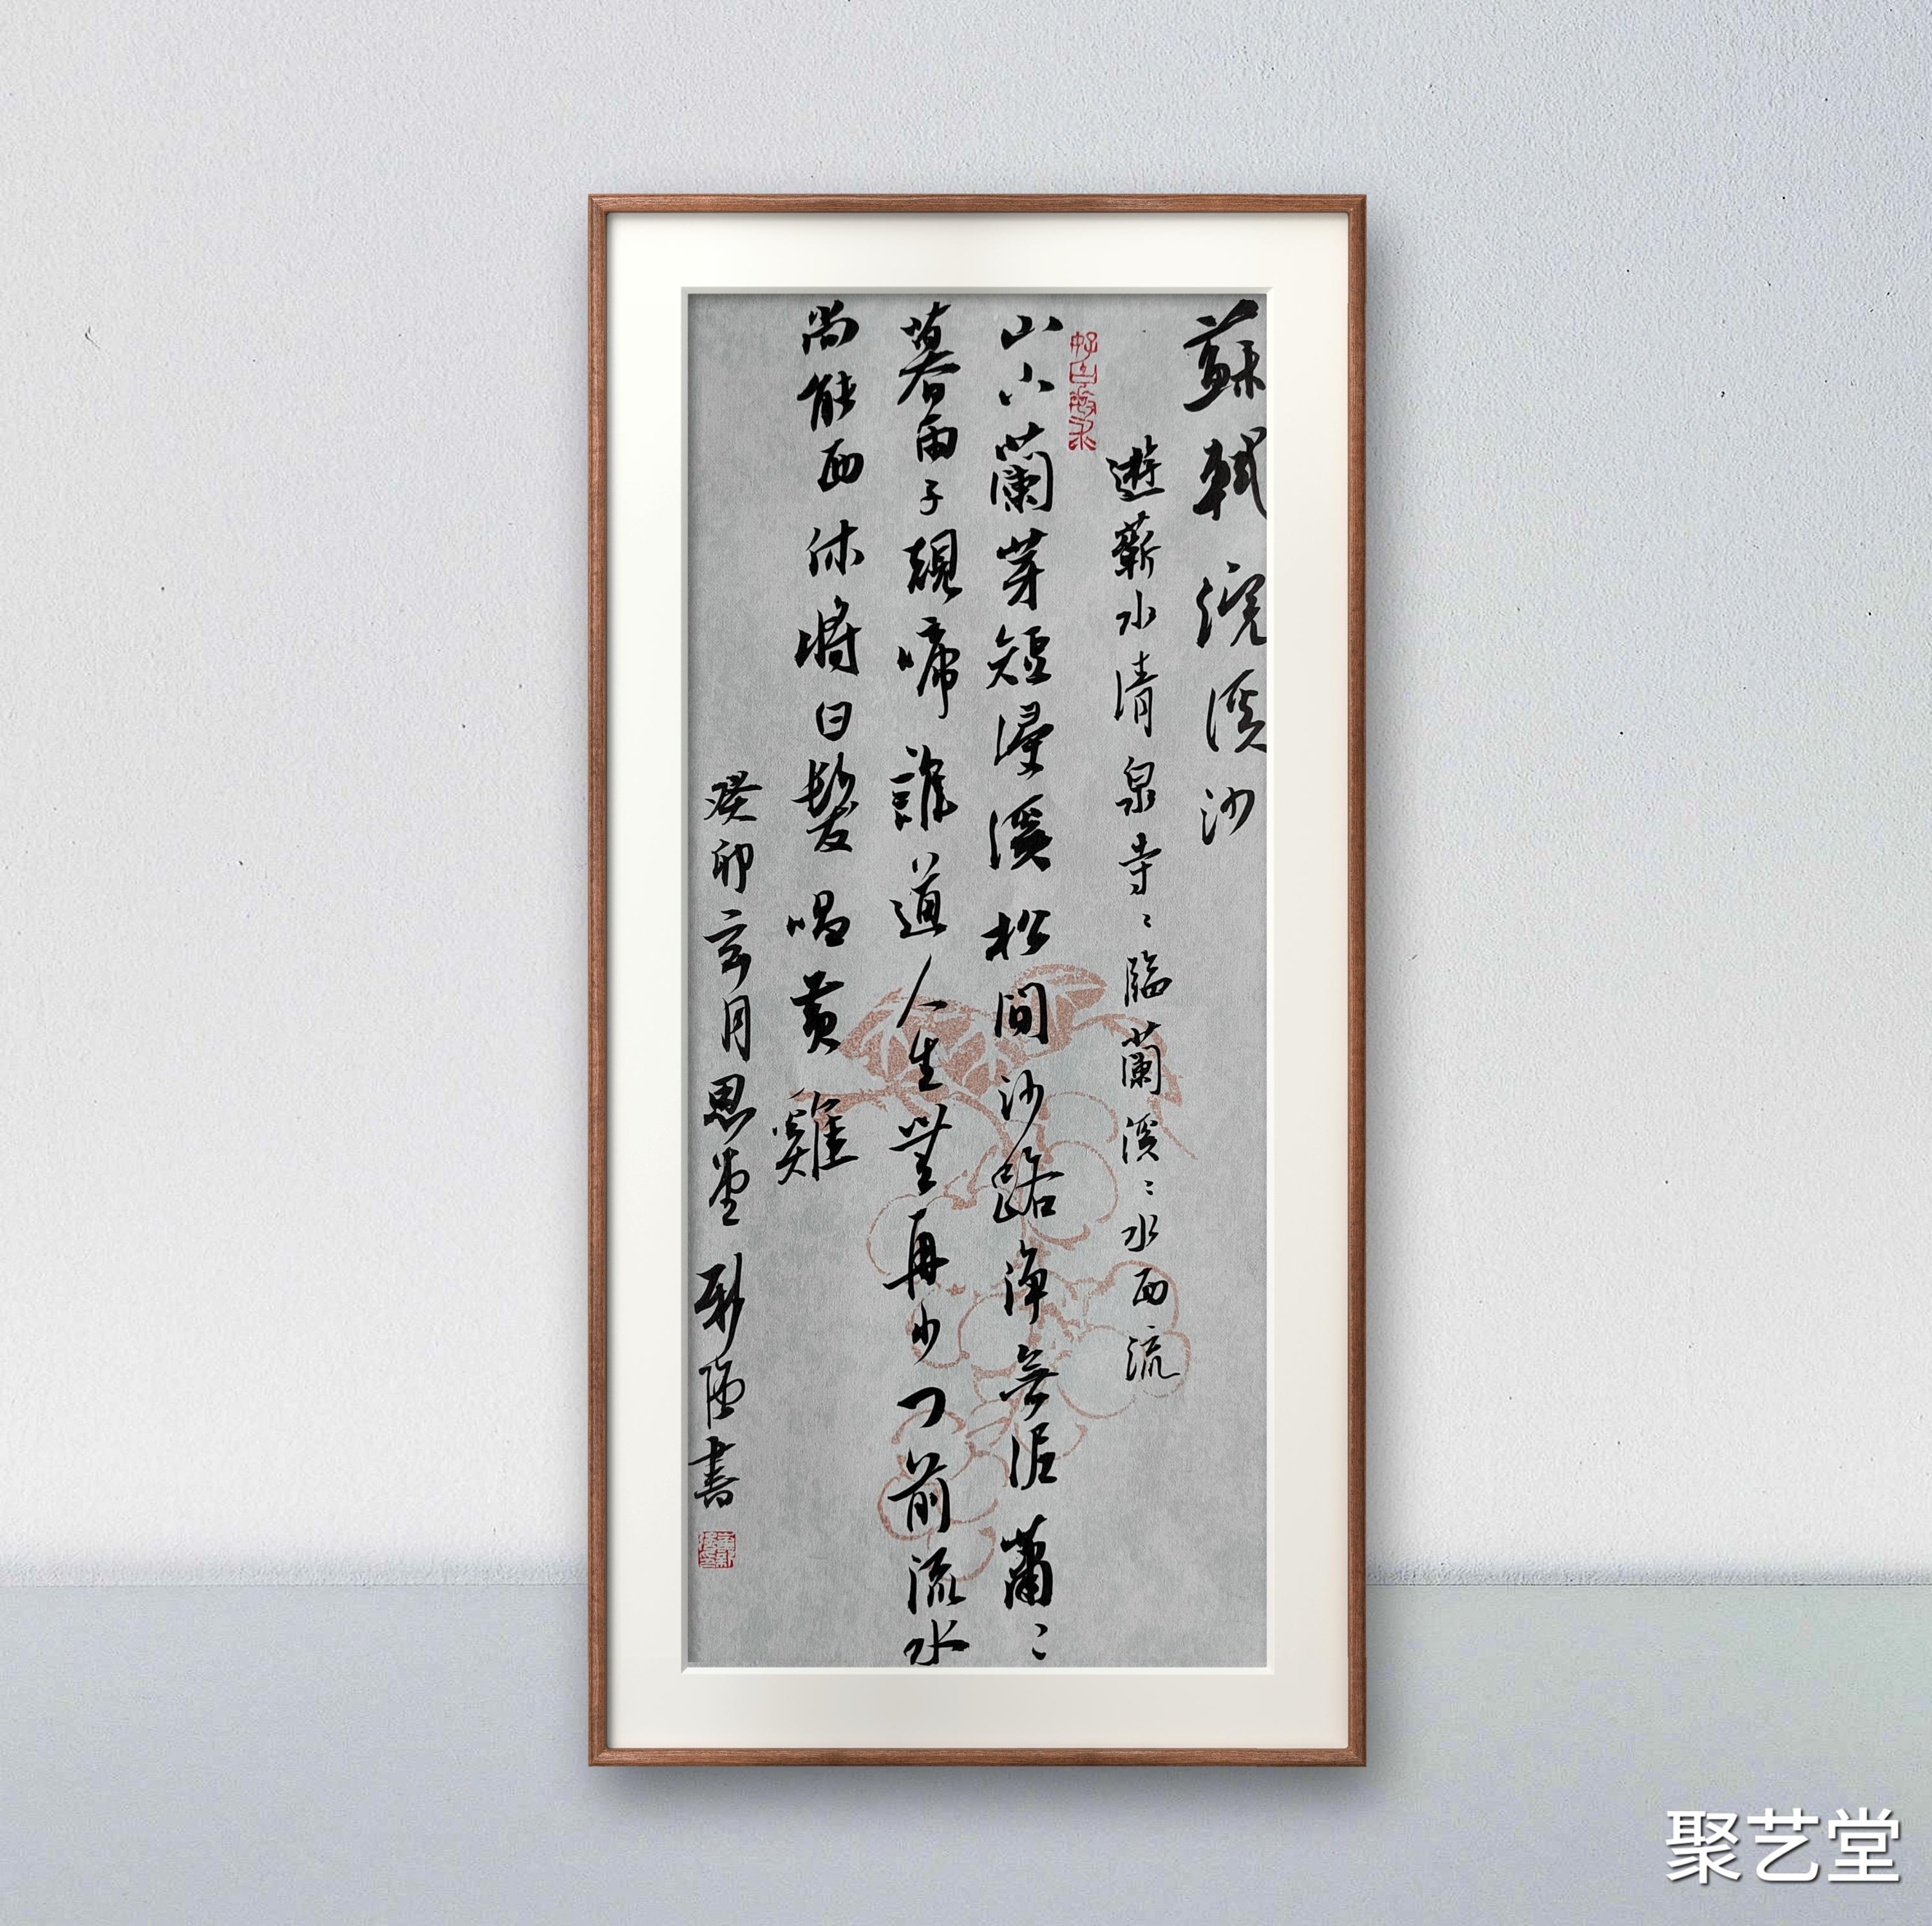 蘇軾浣溪沙
遊蘄水清泉寺〻臨蘭溪〻水西流
山下蘭芽短浸溪松間沙路淨無泥蕭〻
暮雨子規啼誰道人生無再少门前流水
尚能西休將白髮唱黃雞
癸卯玄月思堂書
聚艺堂